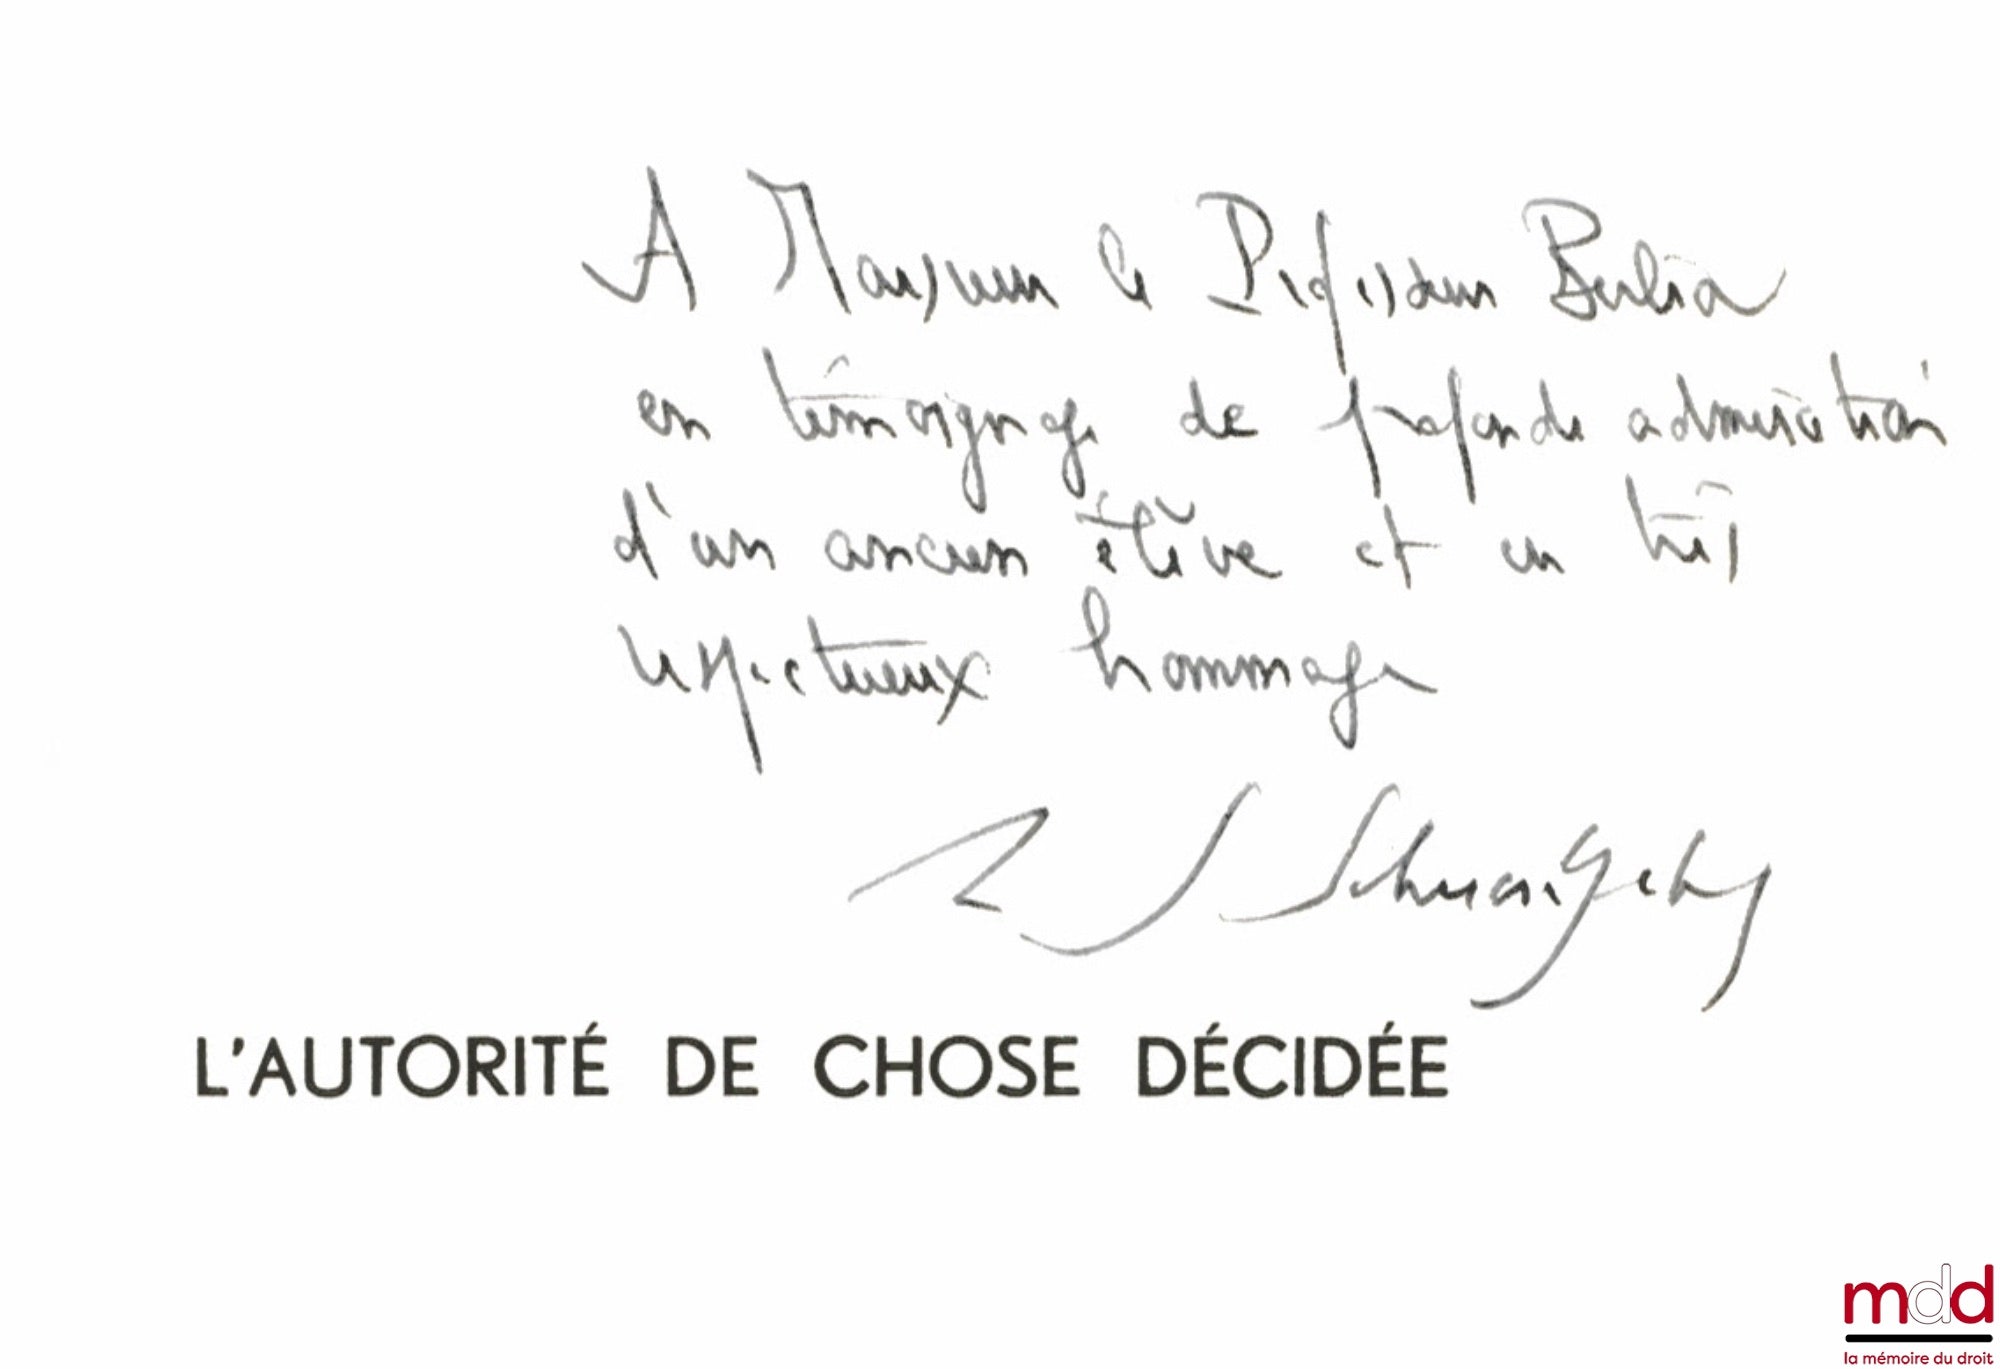 A Monsieur le Professeur Berlia
en témoignage de profonde admiration
d'un ancien élève et en très
respectueux hommage
Schwartzenberg
L'AUTORITÉ DE CHOSE DÉCIDÉE
mdd
la mémoire du droit